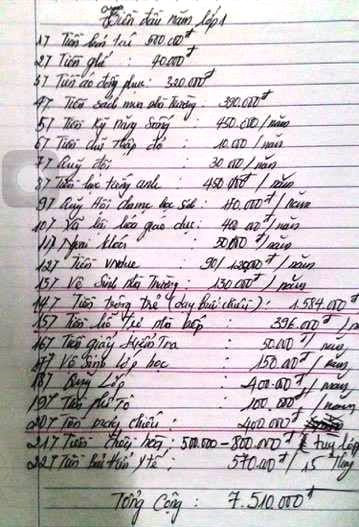 Tiền đầu năm lớp 1
1) Tiền bán trú 500.000đ
2) Tiền ghế : 40.000đ
3) Tiền áo đồng phục : 320.000đ
4) Tiền sách mua nhà trường : 390.000đ
5) Tiền Kỹ năng sống : 450.000 / năm
6) Tiền chữ thập đỏ : 10.000 / năm
7) Quỹ đội : 30.000 / năm
8) Tiền học tiếng anh : 450.000đ / năm
9) Quỹ Hội cha mẹ học sinh : 150.000đ / năm
10) Vở bài báo giáo dục : 40.000đ / năm
11) Ngoại khóa : 50.000đ / năm
12) Tiền Vnedu : 90/ 120.000đ / năm
13) Vệ Sinh nhà Trường : 130.000đ / năm
14) Tiền trông trẻ (dạy buổi chiều) : 1.584.000đ
15) Tiền hỗ trợ nhà bếp : 396.000đ / năm
16) Tiền giấy Kiểm Tra : 50.000đ / năm
17) Vệ Sinh lớp học : 150.000đ / năm
18) Quỹ Lớp : 400.000đ / năm
19) Tiền phô tô : 100.000đ / năm
20) Tiền chiều : 400.000đ
21) Tiền : 500.000 - 800.000đ ( tuỳ lớp
22) Tiền bảo hiểm Y tế : 570.000đ / 15 Tháng
Tổng Cộng : 7.510.000đ